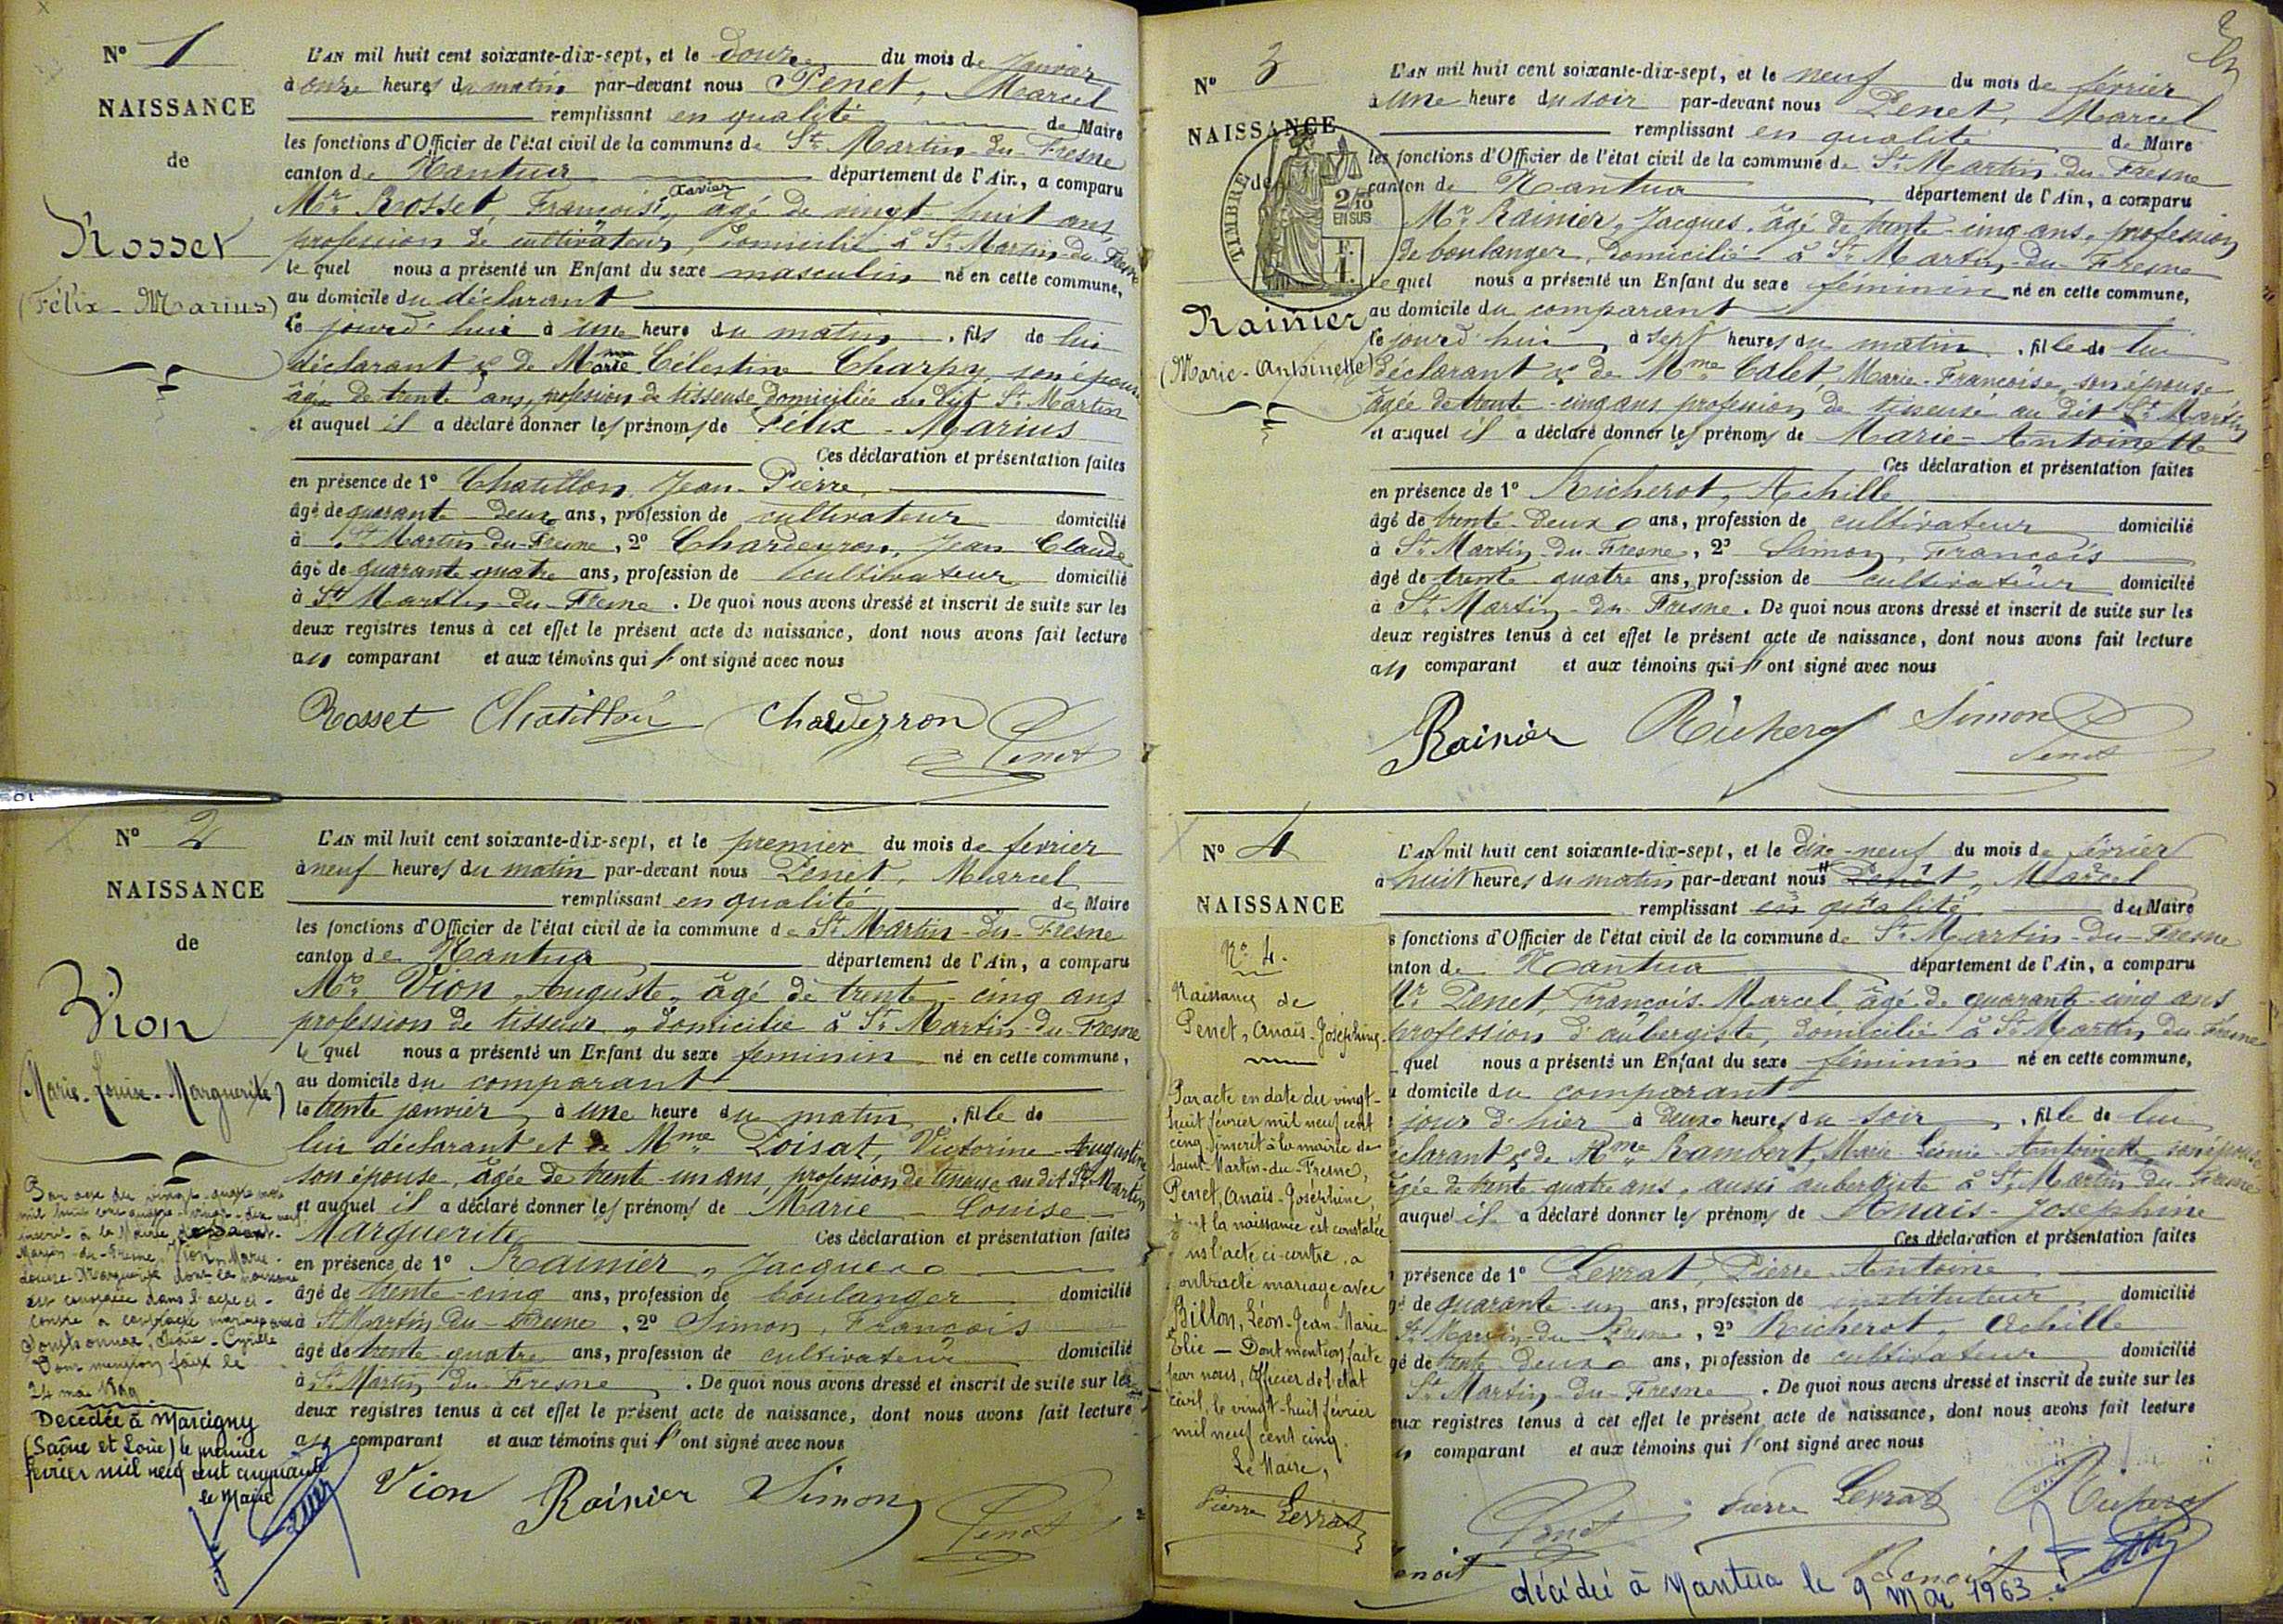 N° 1
NAISSANCE
de
Rosset
(Félix-Marius)
L'AN mil huit cent soixante-dix-sept, et le douze du mois de Janvier
à onze heures du matin par-devant nous Penet, Marcel
remplissant en qualité de Maire
les fonctions d'Officier de l'état civil de la commune de St Martin-du-Fresne
canton de Nantua département de l'Ain, a comparu
Mr Rosset, François Xavier, âgé de vingt-huit ans,
profession de cultivateur, domicilié à St Martin-du-Fresne
lequel nous a présenté un Enfant du sexe masculin né en cette commune,
au domicile du déclarant
le jourd'hui à une heure du matin, fils de lui
déclarant & de Marie Célestine Charpy, son épouse
âgée de trente ans, profession de tisseuse domiciliée au dit St Martin
et auquel il a déclaré donner les prénoms de Félix-Marius
Ces déclaration et présentation faites
en présence de 1° Chatillon, Jean-Pierre,
âgé de quarante-deux ans, profession de cultivateur domicilié
à St Martin-du-Fresne, 2° Chardeyron, Jean Claude
âgé de quarante quatre ans, profession de cultivateur domicilié
à St Martin-du-Fresne. De quoi nous avons dressé et inscrit de suite sur les
deux registres tenus à cet effet le présent acte de naissance, dont nous avons fait lecture
au comparant et aux témoins qui l'ont signé avec nous
Rosset Chatillon Chardeyron
Penet
N° 2
NAISSANCE
de
Vion
(Marie-Louise-Marguerite)
L'AN mil huit cent soixante-dix-sept, et le premier du mois de février
à neuf heures du matin par-devant nous Penet, Marcel
remplissant en qualité de Maire
les fonctions d'Officier de l'état civil de la commune de St Martin-du-Fresne
canton de Nantua département de l'Ain, a comparu
Mr Vion, Auguste, âgé de trente-cinq ans
profession de tisseur, domicilié à St Martin-du-Fresne
lequel nous a présenté un Enfant du sexe féminin né en cette commune,
au domicile du comparant
le trente janvier à une heure du matin, fille de
lui déclarant et de Mme Loisat, Victorine Augustine
son épouse, âgée de trente-un ans, profession de tisseuse au dit St Martin
et auquel il a déclaré donner les prénoms de Marie-Louise-
Marguerite Ces déclaration et présentation faites
en présence de 1° Rainier, Jacques
âgé de trente-cinq ans, profession de boulanger domicilié
à St Martin-du-Fresne, 2° Simon, François
âgé de trente-quatre ans, profession de cultivateur domicilié
à St Martin-du-Fresne. De quoi nous avons dressé et inscrit de suite sur les
deux registres tenus à cet effet le présent acte de naissance, dont nous avons fait lecture
au comparant et aux témoins qui l'ont signé avec nous
Vion Rainier Simon
Penet
Par acte du vingt-quatre
mil huit cent quatre-vingt-dix neuf
inscrit à la Mairie de Saint-
Martin-du-Fresne, Vion, Marie-
Louise Marguerite dont la naissance
est constatée dans l'acte ci-
contre a contracté mariage avec
Cyrille
Dont mention faite le
24 mai 1899
Décédée à Marcigny
(Saône et Loire) le premier
février mil neuf cent cinquante
le Maire
N° 3
NAISSANCE
de
TIMBRE
2/10
EN SUS
Rainier
(Marie-Antoinette)
L'AN mil huit cent soixante-dix-sept, et le neuf du mois de février
à une heure du soir par-devant nous Penet, Marcel
remplissant en qualité de Maire
les fonctions d'Officier de l'état civil de la commune de St Martin-du-Fresne
canton de Nantua département de l'Ain, a comparu
Mr Rainier, Jacques, âgé de trente-cinq ans, profession
de boulanger, domicilié à St Martin-du-Fresne
lequel nous a présenté un Enfant du sexe féminin né en cette commune,
au domicile du comparant
le jourd'hui à sept heures du matin, fille de lui
déclarant & de Mme Calet, Marie-Françoise, son épouse
âgée de trente-cinq ans profession de tisseuse au dit St Martin
et auquel il a déclaré donner les prénoms de Marie-Antoinette
Ces déclaration et présentation faites
en présence de 1° Richerot, Achille
âgé de trente-deux ans, profession de cultivateur domicilié
à St Martin-du-Fresne, 2° Simon, François
âgé de trente-quatre ans, profession de cultivateur domicilié
à St Martin-du-Fresne. De quoi nous avons dressé et inscrit de suite sur les
deux registres tenus à cet effet le présent acte de naissance, dont nous avons fait lecture
au comparant et aux témoins qui l'ont signé avec nous
Rainier Richerot Simon
Penet
N° 4
NAISSANCE
L'AN mil huit cent soixante-dix-sept, et le dix-neuf du mois de février
à huit heures du matin par-devant nous Penet, Marcel
remplissant en qualité du Maire
s fonctions d'Officier de l'état civil de la commune de St Martin-du-Fresne
nton de Nantua département de l'Ain, a comparu
Mr Penet, François-Marcel, âgé de quarante-cinq ans
profession d'aubergiste, domicilié à St Martin du Fresne
quel nous a présenté un Enfant du sexe féminin né en cette commune,
u domicile du comparant
jour d'hier à deux heures du soir, fille de lui
clarant & de Mme Rambert, Marie-Léonie-Antoinette son épouse
gée de trente quatre ans, aussi aubergiste à St Martin du Fresne
auquel il a déclaré donner les prénoms de Anaïs-Joséphine
Ces déclaration et présentation faites
présence de 1° Levrat, Pierre-Antoine
gé de quarante-un ans, profession de instituteur domicilié
St Martin-du-Fresne, 2° Richerot, Achille
gé de trente-deux ans, profession de cultivateur domicilié
St Martin-du-Fresne. De quoi nous avons dressé et inscrit de suite sur les
eux registres tenus à cet effet le présent acte de naissance, dont nous avons fait lecture
comparant et aux témoins qui l'ont signé avec nous
Penet Pierre Levrat Richerot
Benoit
décédée à Nantua le 9 mai 1963
N° 4.
Naissance de
Penet, Anaïs-Joséphine.
Par acte en date du vingt-
huit février mil neuf cent
cinq, inscrit à la mairie de
Saint-Martin-du-Fresne,
Penet, Anaïs-Joséphine,
t la naissance est constatée
ns l'acte ci-contre, a
ontracté mariage avec
Billon, Léon-Jean-Marie
Elie — Dont mention faite
par nous, Officier de l'état
civil, le vingt-huit février
mil neuf cent cinq.
Le Maire,
Pierre Levrat